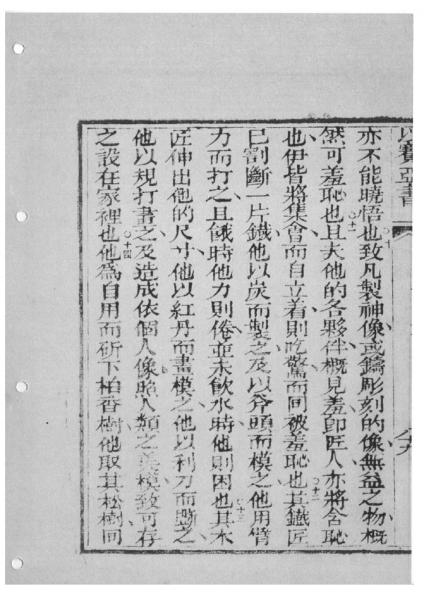 以賽亞書
亦不能曉悟也致凡製神像或鑄彫刻的像無益之物概
然可羞恥也且夫他的各夥伴概見羞卽匠人亦將含恥
也伊皆將集會而自立着則吃驚而同被羞恥也其鐵匠
已割斷一片鐵他以炭而製之及以斧頭而模之他用臂
力而打之且餓時他力則倦並未飲水時他則困也其木
匠伸出他的尺寸他以紅丹而畫模之他以利刀而斲之
他以規打書之及造成依個人像照人類之美模致可存
之設在家裡也他為自用而斫下柏香樹他取其松樹同